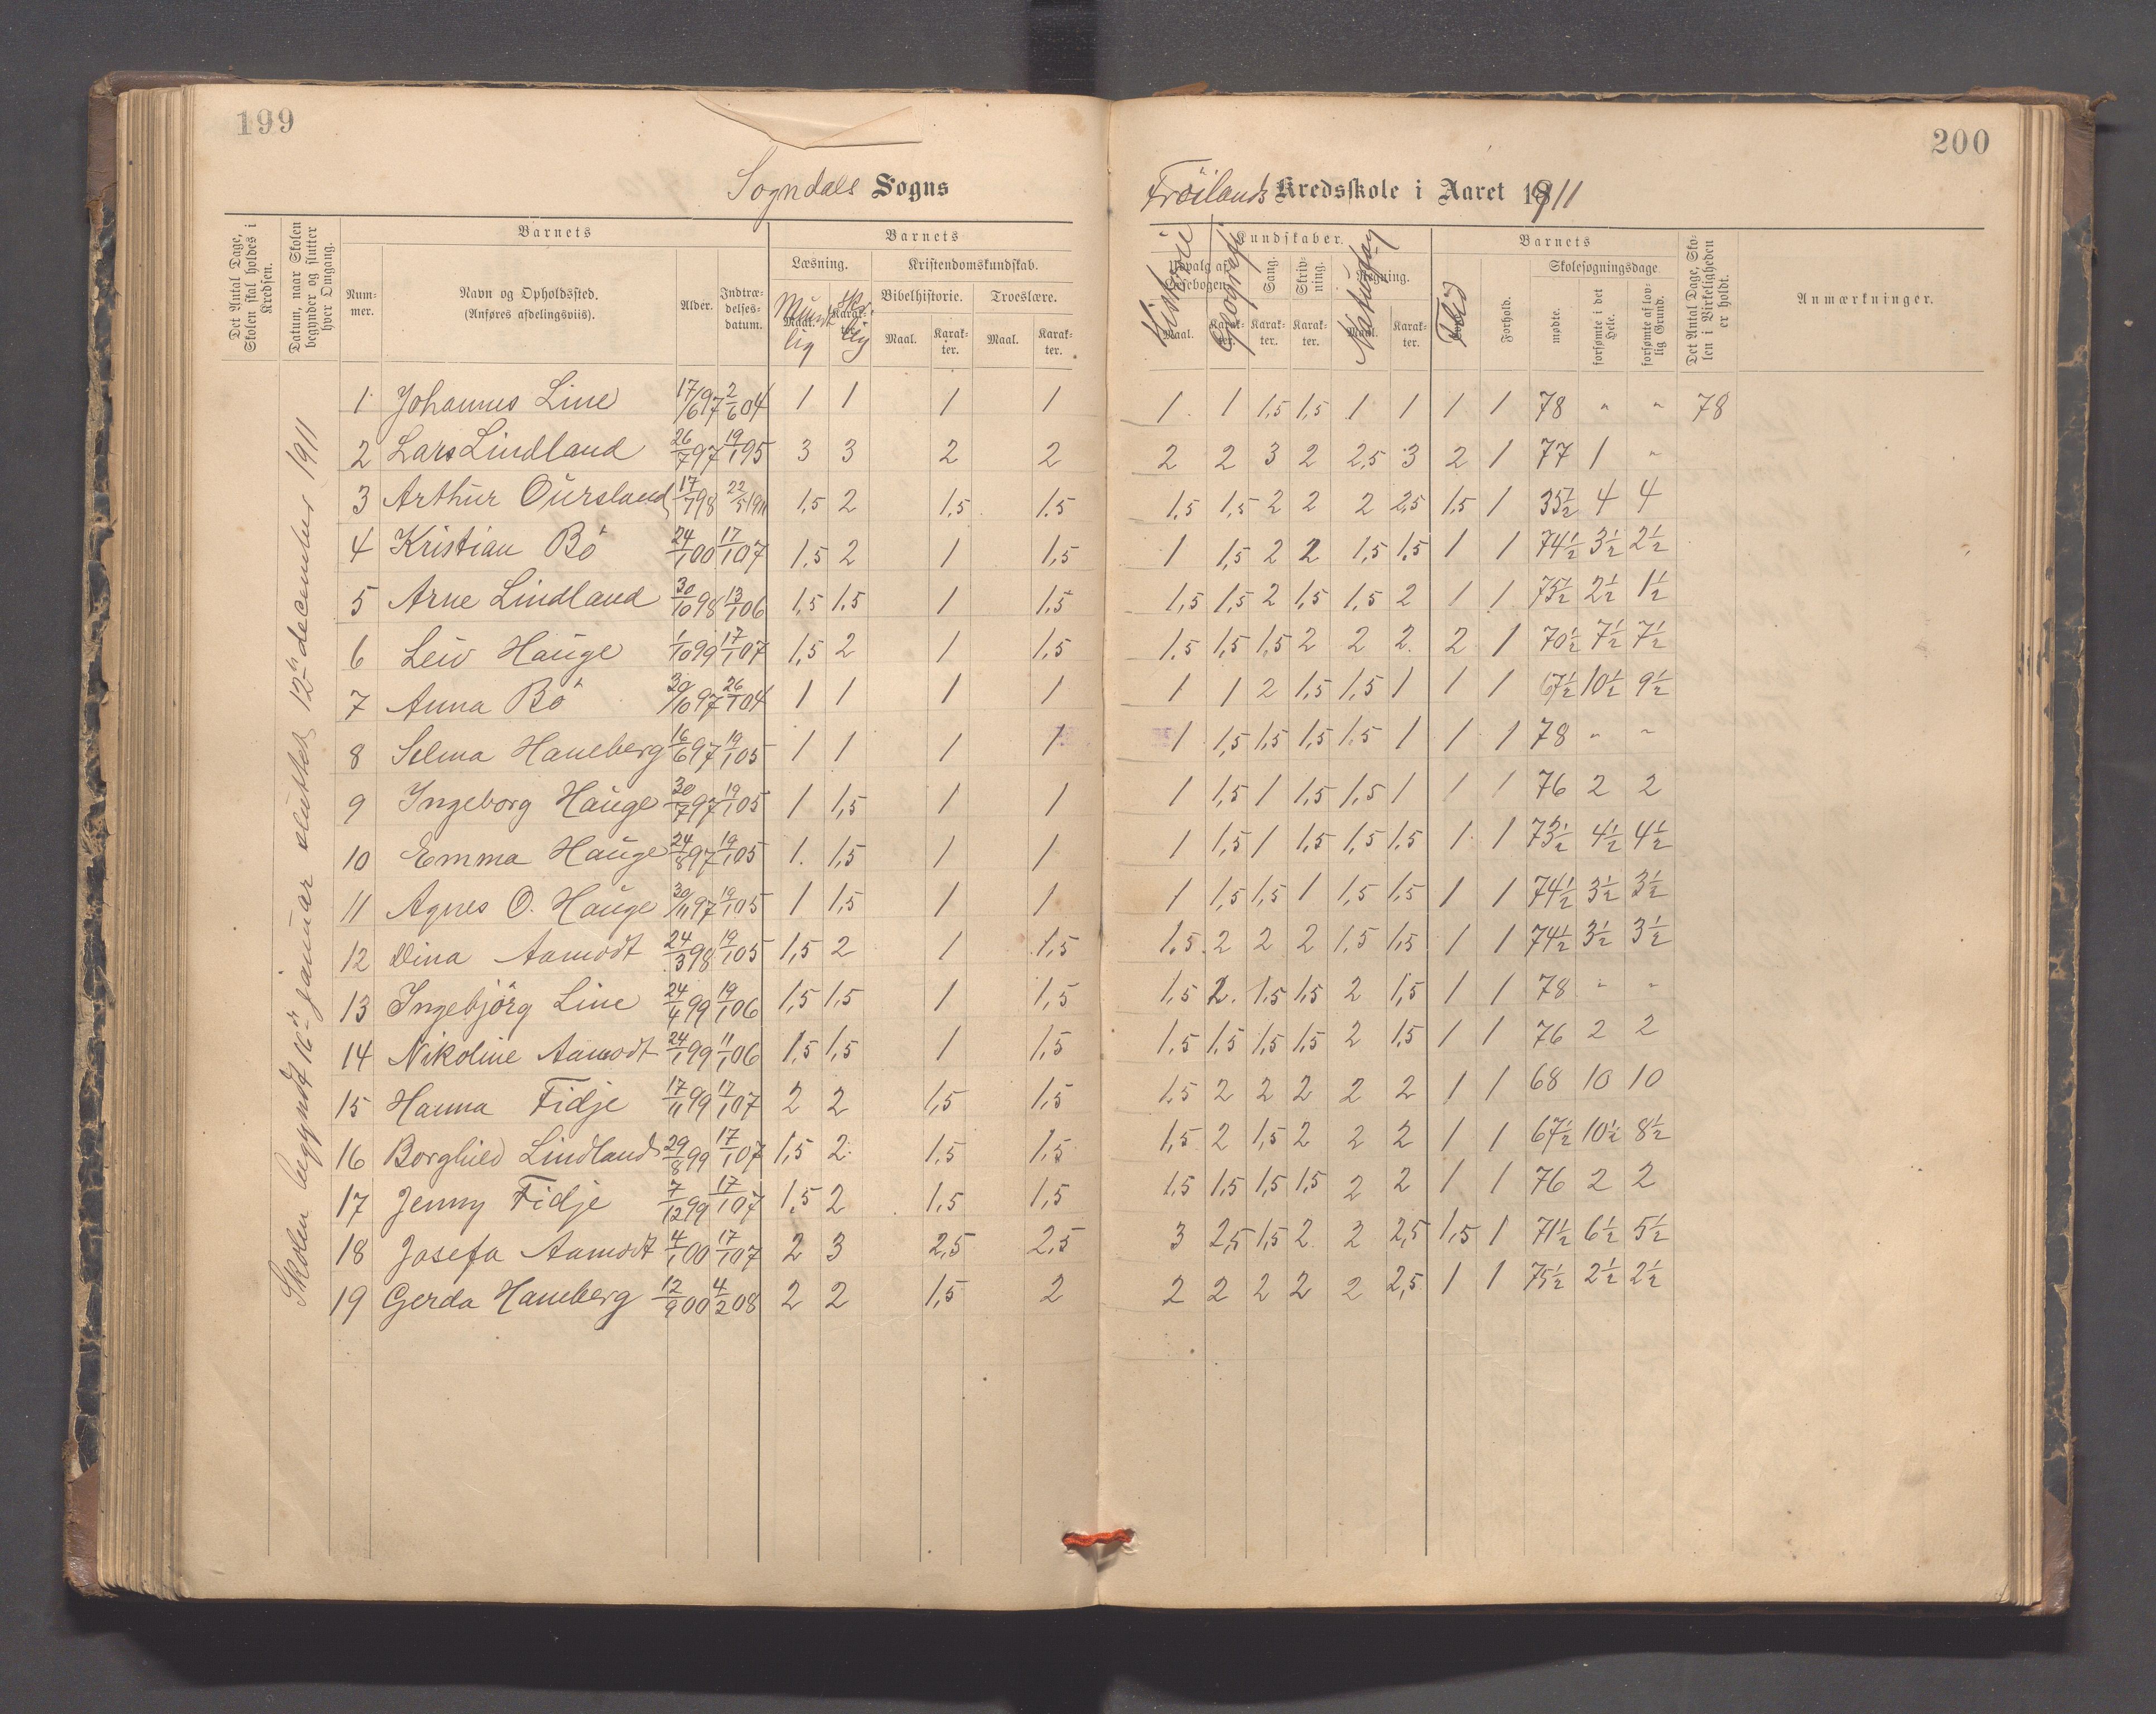 199
200
Sogndals Sogns
Fröilands Kredsskole i Aaret 1911
Det Antal Dage, Skolen skal holdes i Kredsen.
Datum, naar Skolen begynder og slutter hver Omgang.
Barnets
Num-mer.
Navn og Opholdssted.
(Anføres afdelingsviis).
Alder.
Indtræ-delses-datum.
Barnets
Læsning.
Kristendomskundskab.
Mundtlig
Skriftlig
Bibelhistorie.
Troeslære.
Maal. Karak-ter. Maal. Karak-ter.
Kundskaber.
Historie
Geografi
Sang.
Skriv-ning.
Naturfag
Regning.
Maal. Karak-ter. Karak-ter. Karak-ter. Maal. Karak-ter.
Barnets
Flid
Forhold.
Skolesøgningsdage
mødte.
forsømte i det Hele.
forsømte af lov-lig Grund.
Det Antal Dage, Sko-len i Virkeligheden er holdt.
Anmærkninger.
Skolen begyndt 16de januar sluttet 12te december 1911
1 Johannes Line 17/6 97 2/6 04 1 1 1 1 1 1 1,5 1,5 1 1 1 1 78 " " 78
2 Lars Lindland 26/7 97 19/1 95 3 3 2 2 2 2 3 2 2,5 3 2 1 77 1 "
3 Arthur Oursland 17/7 98 22/5 1911 1,5 2 1,5 1,5 1,5 1,5 2 2 2 2,5 1,5 1 35 1/2 4 4
4 Kristian Bö 24/1 00 17/1 07 1,5 2 1 1,5 1 1,5 2 2 1,5 1,5 1 1 74 1/2 3 1/2 2 1/2
5 Arne Lindland 30/10 98 13/1 06 1,5 1,5 1 1,5 1,5 1,5 2 1,5 1,5 2 1 1 75 1/2 2 1/2 1 1/2
6 Leiv Hauge 1/10 99 17/1 07 1,5 2 1 1,5 1,5 1,5 1,5 2 2 2 2 1 70 1/2 7 1/2 7 1/2
7 Anna Bö 30/10 97 26/1 04 1 1 1 1 1 1 2 1,5 1,5 1 1 1 67 1/2 10 1/2 9 1/2
8 Selma Haneberg 16/6 97 19/1 05 1 1 1 1 1 1,5 1,5 1,5 1,5 1 1 1 78 " "
9 Ingeborg Hauge 30/7 97 19/1 05 1 1,5 1 1 1 1,5 1 1,5 1,5 1 1 1 76 2 2
10 Emma Hauge 24/8 97 19/1 05 1 1,5 1 1 1 1,5 1 1,5 1,5 1,5 1 1 73 1/2 4 1/2 4 1/2
11 Agnes O. Hauge 30/11 97 19/1 05 1 1,5 1 1 1 1,5 1,5 1 1,5 1,5 1 1 74 1/2 3 1/2 3 1/2
12 Dina Aamodt 24/3 98 19/1 05 1,5 2 1 1,5 1,5 2 2 2 1,5 1,5 1 1 74 1/2 3 1/2 3 1/2
13 Ingebjörg Line 24/4 99 19/1 06 1,5 1,5 1 1,5 1,5 2 1,5 1,5 2 1,5 1 1 78 " "
14 Nikoline Aamodt 24/1 99 11/1 06 1,5 1,5 1 1,5 1,5 1,5 1,5 1,5 2 1,5 1 1 76 2 2
15 Hanna Fidje 17/11 99 17/1 07 2 2 1,5 1,5 1,5 2 2 2 2 2 1 1 68 10 10
16 Borghild Lindland 29/8 99 17/1 07 1,5 2 1,5 1,5 1,5 2 1,5 2 2 2 1 1 67 1/2 10 1/2 8 1/2
17 Jenny Fidje 7/12 99 17/1 07 1,5 2 1,5 1,5 1,5 1,5 1,5 1,5 2 2 1 1 76 2 2
18 Josefa Aamodt 4/1 00 17/1 07 2 3 2,5 2,5 3 2,5 1,5 2 2 2,5 1,5 1 71 1/2 6 1/2 5 1/2
19 Gerda Haneberg 12/9 00 4/2 08 2 2 1,5 2 2 2 2 2 2 2,5 1 1 75 1/2 2 1/2 2 1/2